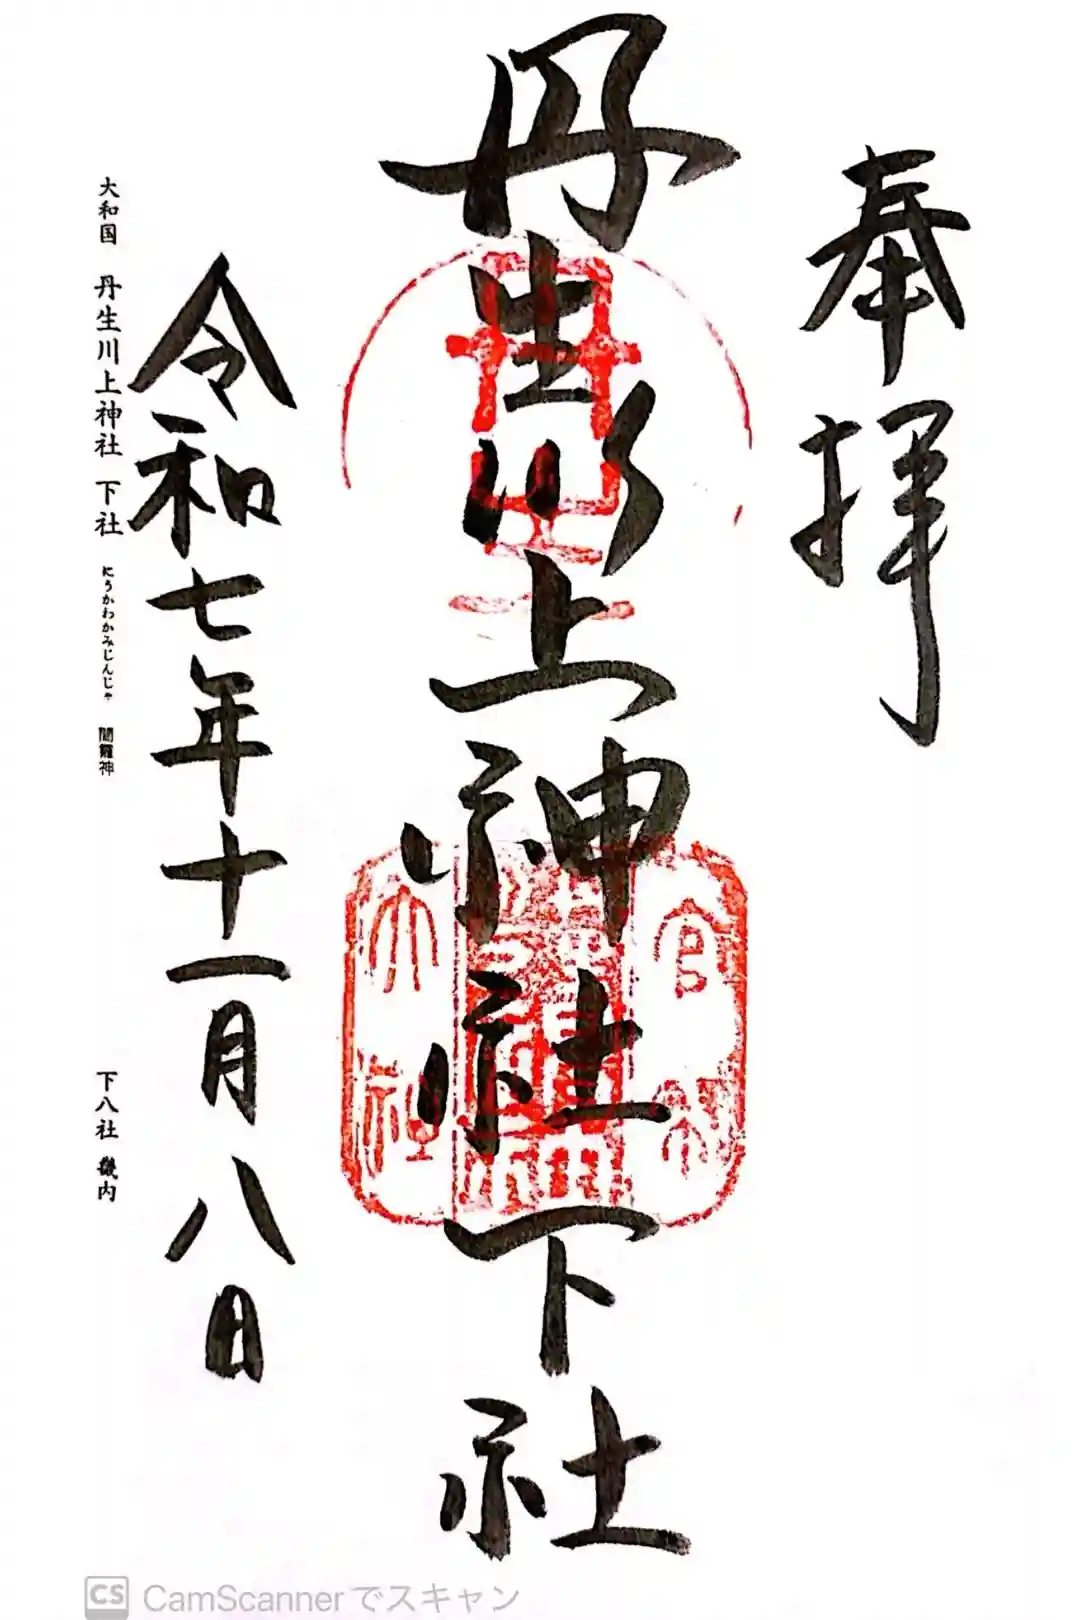 奉拝
丹生川上神社下社
官幣
大社
令和七年十一月八日
大和国 丹生川上神社 下社 にうかわかみじんじゃ 闇龗神
下八社 畿内
CS CamScannerでスキャン